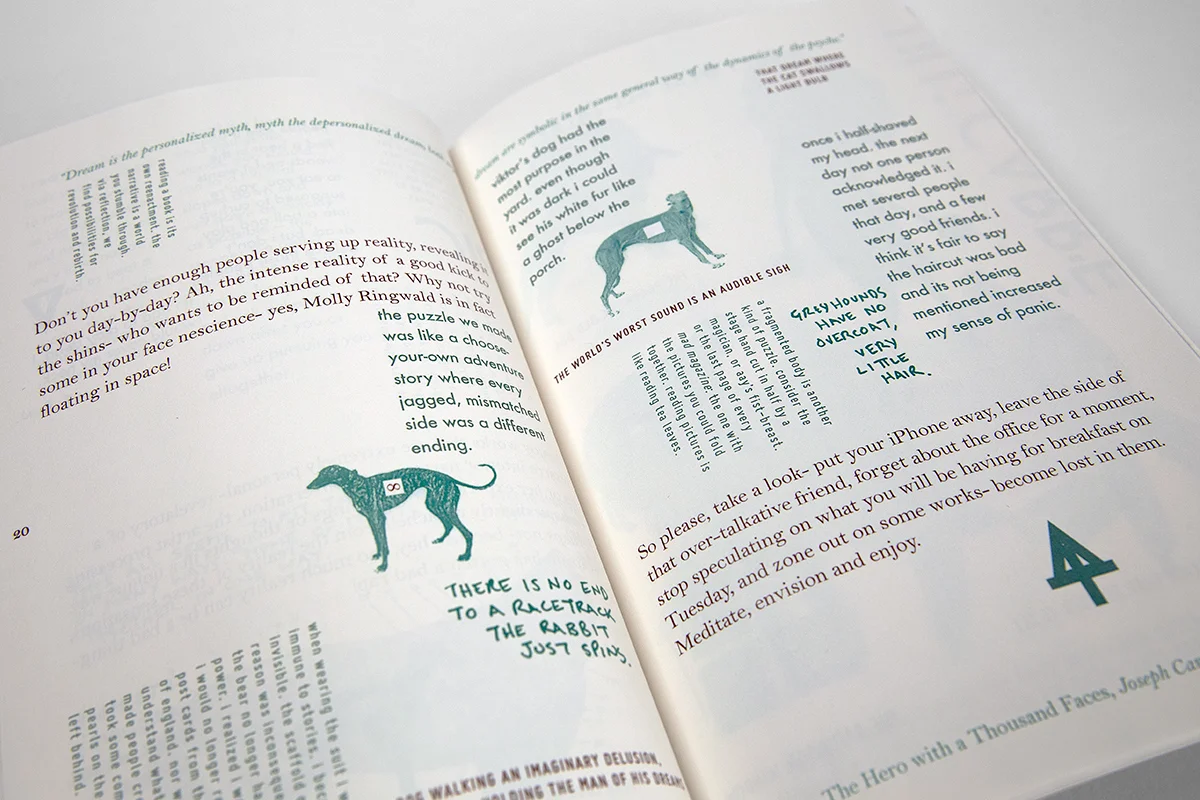 "Dream is the personalized myth, myth the depersonalized dream,
reading a book is its
own reenactment. the
narrative is a world
you stumble through.
via reflection, we
find possibilities for
revolution and rebirth.
Don't you have enough people serving up reality, revealing
to you day-by-day? Ah, the intense reality of a good kick to
the shins- who wants to be reminded of that? Why not try
some in your face nescience- yes, Molly Ringwald is in fact
floating in space!
the puzzle we made
was like a choose-
your-own adventure
story where every
jagged, mismatched
side was a different
ending.
8
20
THERE IS NO END
TO A RACETRACK
THE RABBIT
JUST SPINS.
when wearing the suit i
immune to stories. i
invisible. the scaffold
reason was
the bear no longer
power. i realized i
i would no longer
post cards from
of england. nor
understand what
made people
took some
pearls on the
left behind.
WALKING AN IMAGINARY DELUSION,
THE MAN OF HIS DREAMS
dream are symbolic in the same general way of the dynamics of the psyche."
THAT DREAM WHERE
THE CAT SWALLOWS
A LIGHT BULB
viktor's dog had the
most purpose in the
yard. even though
it was dark i could
see his white fur like
a ghost below the
porch.
once i half-shaved
my head. the next
day not one person
acknowledged it. i
met several people
that day, and a few
very good friends. i
think it's fair to say
the haircut was bad
and its not being
mentioned increased
my sense of panic.
THE WORLD'S WORST SOUND IS AN AUDIBLE SIGH
GREYHOUNDS
HAVE NO
OVERCOAT,
VERY
LITTLE
HAIR.
a fragmented body is another
kind of puzzle. consider the
stage hand cut in half by a
magician, or aay's fist-breast.
or the last page of every
mad magazine: the one with
the pictures you could fold
together. reading pictures is
like reading tea leaves.
So please, take a look- put your iPhone away, leave the side of
that over-talkative friend, forget about the office for a moment,
stop speculating on what you will be having for breakfast on
Tuesday, and zone out on some works- become lost in them.
Meditate, envision and enjoy.
The Hero with a Thousand Faces, Joseph